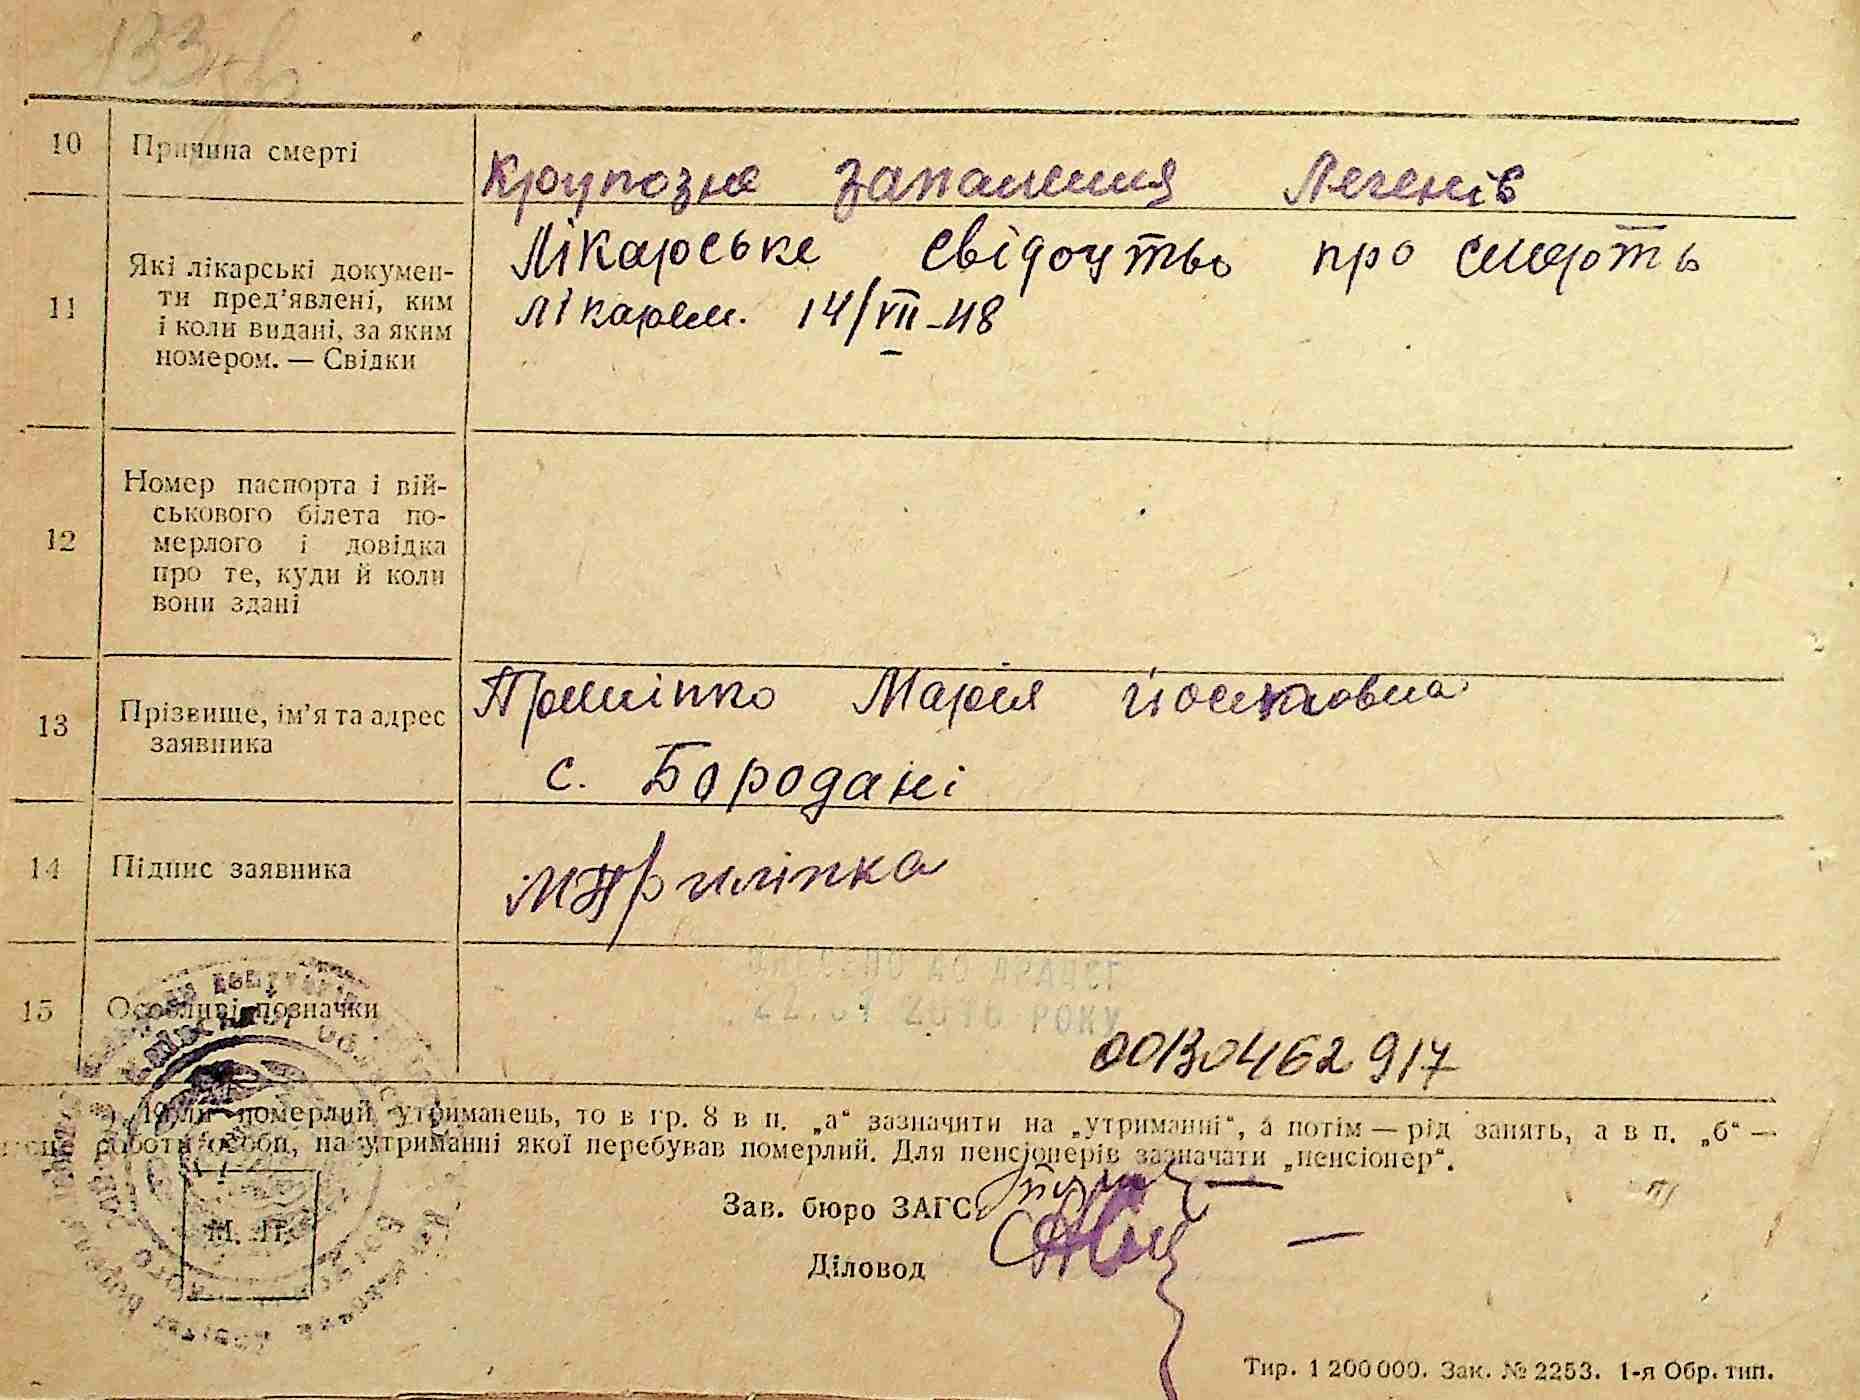 10
Причина смерті
Крупозне запалення Легенів
11
Які лікарські докумен-
ти пред'явлені, ким
і коли видані, за яким
номером. — Свідки
Лікарське свідоцтво про смерть
лікарем. 14/VII-48
12
Номер паспорта і вій-
ськового білета по-
мерлого і довідка
про те, куди й коли
вони здані
13
Прізвище, ім'я та адрес
заявника
Марія
с. Бородані
14
Підпис заявника
15
Особливі позначки
ВНЕСЕНО ДО ДРАЦСГ
РОКУ
00130462917
померлий утриманець, то в гр. 8 в п. „а“ зазначити на „утриманні“, а потім — рід занять, а в п. „б“ —
роботи особи, на утриманні якої перебував померлий. Для пенсіонерів зазначати „пенсіонер“.
Зав. бюро ЗАГС
Діловод
М. П.
Тир. 1 200 000. Зак. № 2253. 1-я Обр. тип.